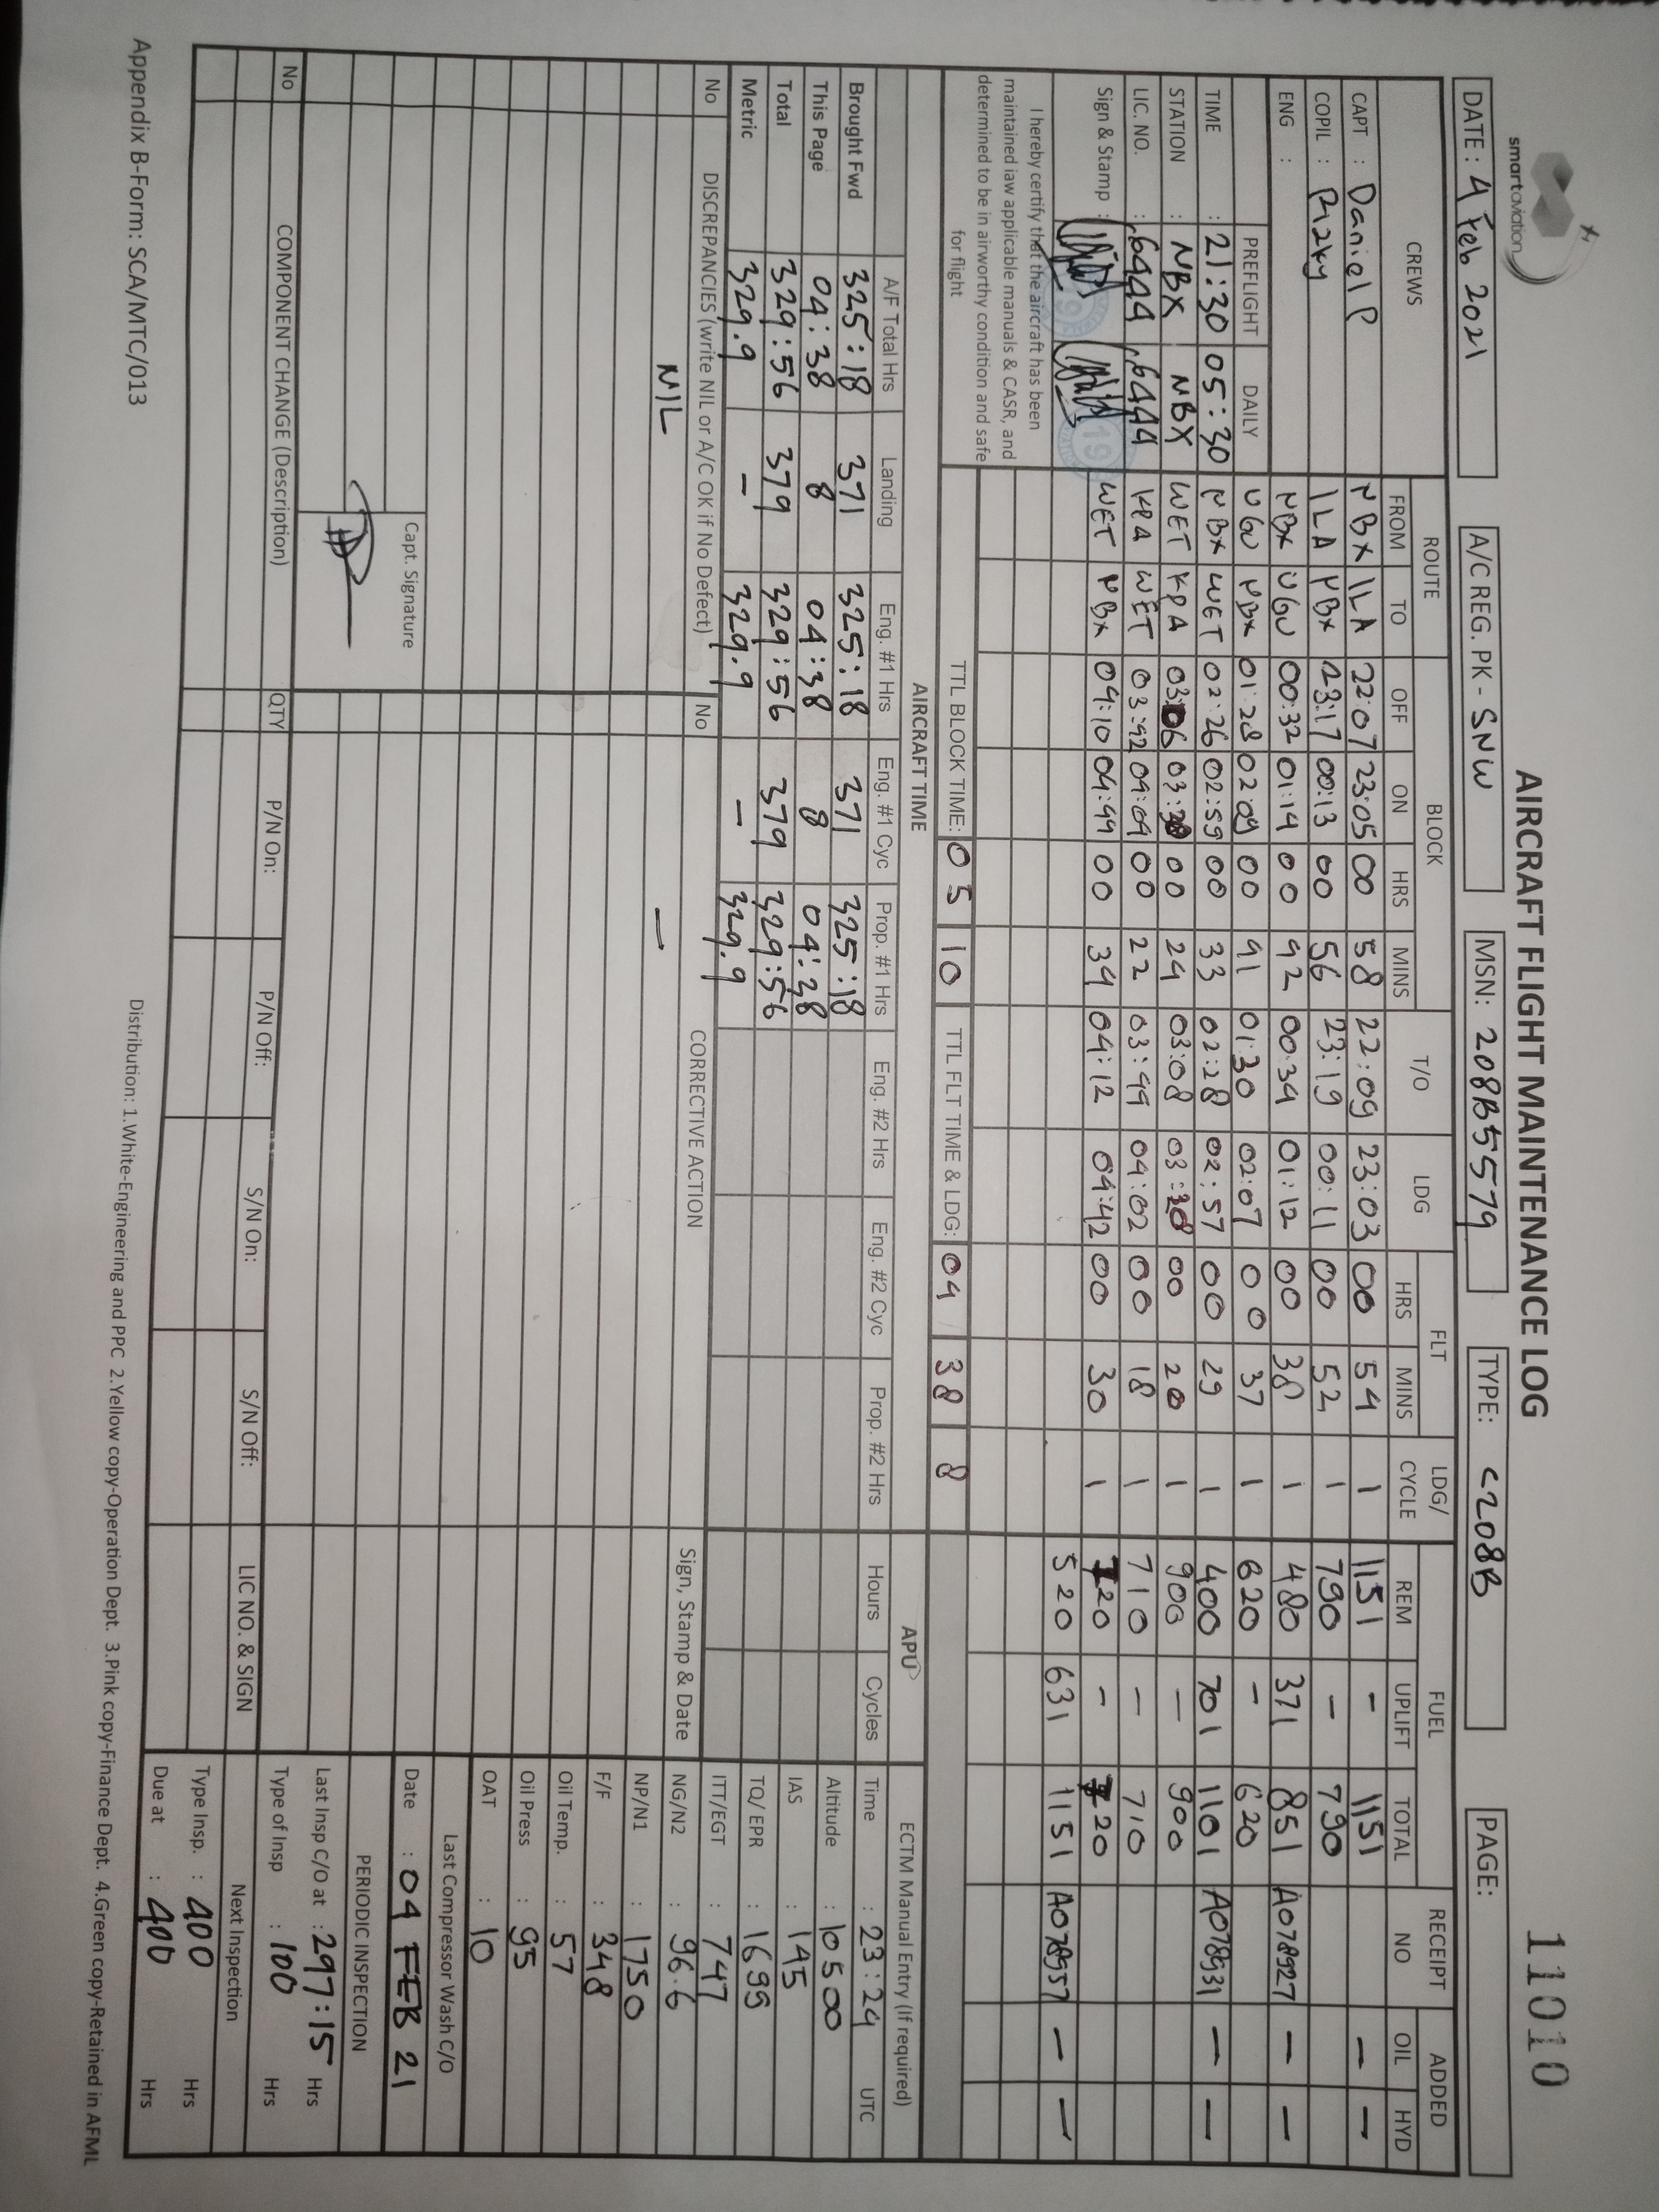 smartaviation
AIRCRAFT FLIGHT MAINTENANCE LOG
11010
DATE : 4 Feb 2021
A/C REG. PK - SNW
MSN: 208B5579
TYPE: C208B
PAGE:
CREWS ROUTE BLOCK T/O LDG FLT LDG/ CYCLE FUEL RECEIPT NO ADDED
FROM TO OFF ON HRS MINS HRS MINS REM UPLIFT TOTAL OIL HYD
CAPT : Daniel P NBX ILA 22:07 23:05 00 58 22:09 23:03 00 54 1 1151 - 1151 — —
COPIL : Rizky ILA NBX 23:17 00:13 00 56 23:19 00:11 00 52 1 790 - 790
ENG : NBX UGU 00:32 01:14 00 42 00:34 01:12 00 38 1 480 371 851 A078927 — —
PREFLIGHT DAILY UGU NBX 01:28 02:09 00 41 01:30 02:07 00 37 1 620 - 620
TIME : 21:30 05:30 NBX WET 02:26 02:59 00 33 02:28 02:57 00 29 1 400 701 1101 A078931 — —
STATION : NBX NBX WET KPA 03:06 00 24 03:08 00 20 1 900 - 900
LIC. NO. : 6444 6444 KPA WET 03:42 04:04 00 22 03:44 04:02 00 18 1 710 - 710
Sign & Stamp : WET NBX 04:10 04:44 00 34 04:12 04:42 00 30 1 -
520 631 1151 A078957 — —
I hereby certify that the aircraft has been
maintained iaw applicable manuals & CASR, and
determined to be in airworthy condition and safe
for flight
TTL BLOCK TIME: 05 10 TTL FLT TIME & LDG: 04 38 8
AIRCRAFT TIME APU ECTM Manual Entry (If required)
A/F Total Hrs Landing Eng. #1 Hrs Eng. #1 Cyc Prop. #1 Hrs Eng. #2 Hrs Eng. #2 Cyc Prop. #2 Hrs Hours Cycles Time : 23:24 UTC
Brought Fwd 325:18 371 325:18 371 325:18 Altitude : 10500
This Page 04:38 8 04:38 8 04:38 IAS : 145
Total 329:56 379 329:56 379 329:56 TQ/ EPR : 1699
Metric 329.9 - 329.9 - 329.9 ITT/EGT : 747
No DISCREPANCIES (write NIL or A/C OK if No Defect) No CORRECTIVE ACTION Sign, Stamp & Date NG/N2 : 96.6
NIL —
NP/N1 : 1750
F/F : 348
Oil Temp. : 57
Oil Press : 95
OAT : 10
Last Compressor Wash C/O
Date : 04 FEB 21
Capt. Signature
PERIODIC INSPECTION
Last Insp C/O at : 297:15 Hrs
No COMPONENT CHANGE (Description) QTY P/N On: P/N Off: S/N On: S/N Off: LIC NO. & SIGN Type of Insp : 100 Hrs
Next Inspection
Type Insp. : 400 Hrs
Due at : 400 Hrs
Appendix B-Form: SCA/MTC/013
Distribution: 1.White-Engineering and PPC 2.Yellow copy-Operation Dept. 3.Pink copy-Finance Dept. 4.Green copy-Retained in AFML